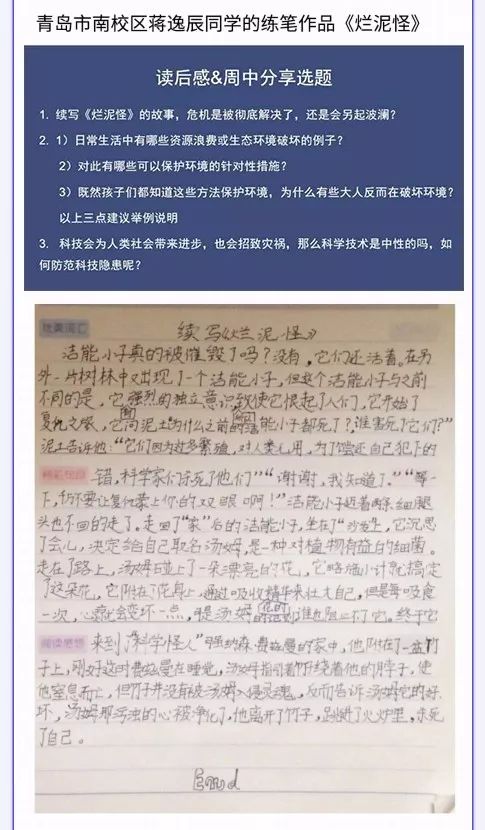 青岛市南校区蒋逸辰同学的练笔作品《烂泥怪》
读后感&周中分享选题
1. 续写《烂泥怪》的故事，危机是被彻底解决了，还是会另起波澜？
2. 1）日常生活中有哪些资源浪费或生态环境破坏的例子？
2）对此有哪些可以保护环境的针对性措施？
3）既然孩子们都知道这些方法保护环境，为什么有些大人反而在破坏环境？
以上三点建议举例说明
3. 科技会为人类社会带来进步，也会招致灾祸，那么科学技术是中性的吗，如
何防范科技隐患呢？
优美词汇
续写《烂泥怪》
洁能小子真的被催毁了吗？没有，它们还活着。在另
外一片树林中又出现了一个洁能小子，但这个洁能小子与之前
不同的是，它强烈的独立意识致使它恨起了人们，它开始了
复仇之旅，它问泥土"为什么之前的洁能小子都死了？谁害死了它们？"
泥土告诉他："它们因为过多繁殖，对人类无用，为了偿还自己犯下的
精彩句段
错，科学家们杀死了他们""谢谢，我知道了。""等一
下，千万不要让复仇蒙上你的双眼啊！"洁能小子迈着两条细腿
头也不回的走了。走回了"家"后的洁能小子，坐在了"沙发"上，它沉思
了会儿，决定给自己取名汤姆，是一种对植物有益的细菌。
走在了路上，汤姆碰上了一朵漂亮的花，它略施小计就搞定
了这朵花，它附在了花身上，通过吸收精华来壮大自己，但是每吸食
一次，心就会变坏一点，可是汤姆 谁也阻止不了它。终于它
阅读感想
来到了"科学怪人"强纳森·费格曼的家中，他附在了一盆竹
子上，刚好这时费格曼在睡觉，汤姆指引着竹子绕着他的脖子，使
他窒息而亡，但竹子并没有被汤姆入侵灵魂，反而告诉汤姆它的好
坏，汤姆那污浊的心被净化了，他离开了竹子，跳进了火炉里，杀死
了自己。
End